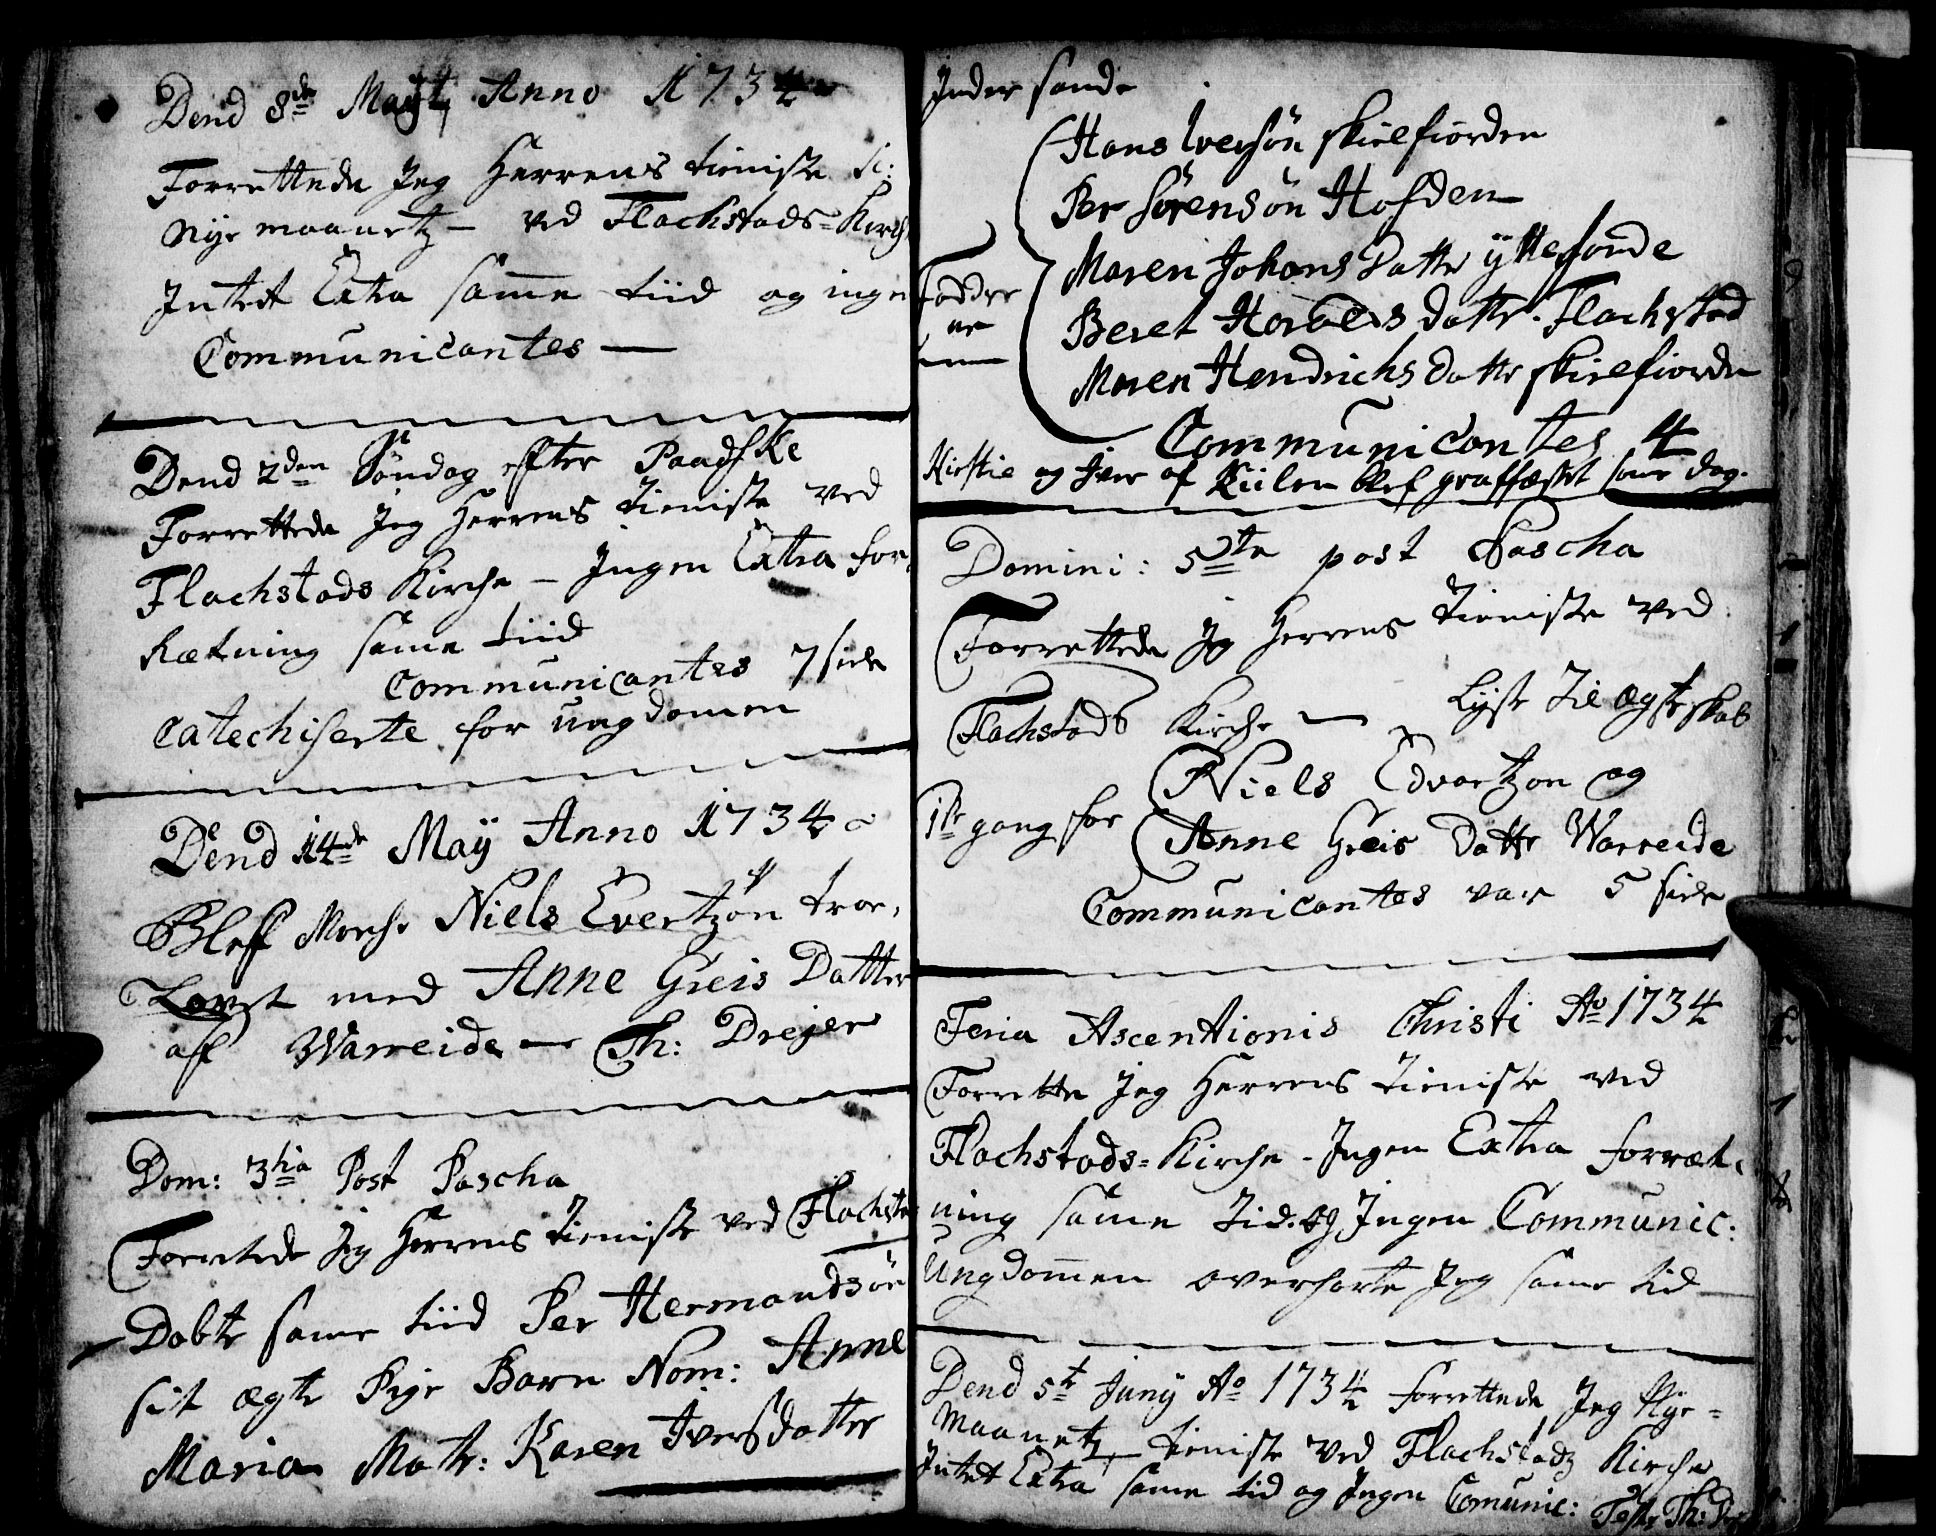 Dend 8de Maij Anno 1734
Forrettede Jeg Herrens tieniste
Nyemaanetz — ved Flachstads=Kirch
Intet Extra samme tiid og ingen
Communicantes —
Dend 2den Søndag efter Paadske
Forrettede Jeg Herrens tieniste ved
Flachstads Kirche — Ingen Extra for,
Rætning same tiid
Communicantes 7 siele
Catechiserte for ungdomen
Dend 14de Maÿ Anno 1734
Bleff Niels Evertzøn troe,
Lovet med Anne Greis Datter
aff Warreide — Th: Drejer
Dom: 3tia Post Pascha
Forrettede Jeg Herrens tieniste ved Flachsta
Døbte same tiid Per Hermandsøn
sit ægte Pige Barn Nom: Anne
Maria Matr: Karen Iversdatter
Fadder
ne
Hans Iversøn skielfiorden
Per Sørensøn Hofden
Maren Johans Datter ÿttesonde
Beret Datter Flachstad
Maren Hendrichs Datter skielfiorden
Communicantes 4
Kirstie og Iver af Kiilen blef graffæstet same dag.
Domini: 5te post Pascha
Forrettede Jg Herrens Tieniste ved
Flachstads Kirche — Lyste Til Ægteskab
1ste gang for Niels Edvartzon og
Anne Greis Datter Warreide
Communicantes var 5 siele
Feria Ascentionis Christi Ao 1734
Forrette Jeg Herrens tieniste ved
Flachstads=Kirche - Ingen Extra forræt,
ning same Tid. og Ingen Communic:
Ungdomen overhørte Jeg same tid —
Dend 5te Junij Ao 1734 forrettede Jeg Nye=
Maanetz — tieniste ved Flachstadz Kirche
Intet Extra same tid og Ingen Comunic: Th: